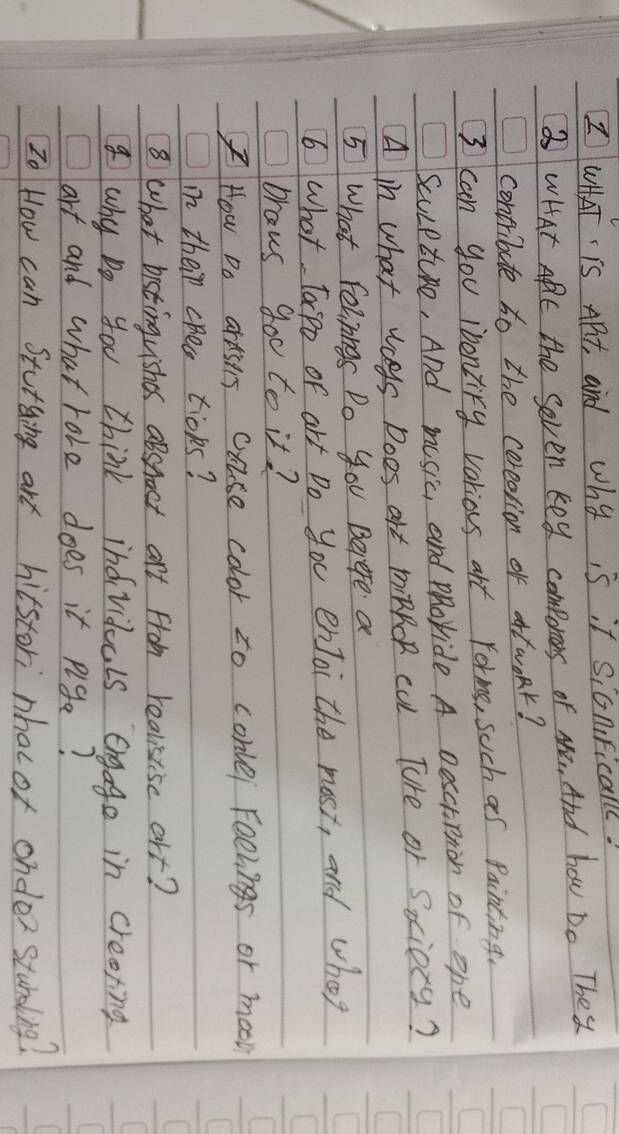 1 WHAT is ARt, and why is it significalle?
2 WHAt ARE the Seven key comporons of Art. And how Do They
contribute to the coreation of artwork?
3 can you inontify various art forme, such as Painting.
Sculpture, And music, and provide A Description of one
4 in what ways Does art mirror cul Ture or Society?
5 what Feliings Do you
6 what Tarpo of art Do you enjoi the most, and what
Draws you to it?
7 How Do artists cruse color to convei Feelings or moon
in their crea tions?
8 what Distinguishos abstract art from realistisc art?
9 why Do you think individuals engage in creating
art and what role does it plga?
10 How can Stutging art hitstori nhac ot onder standing?